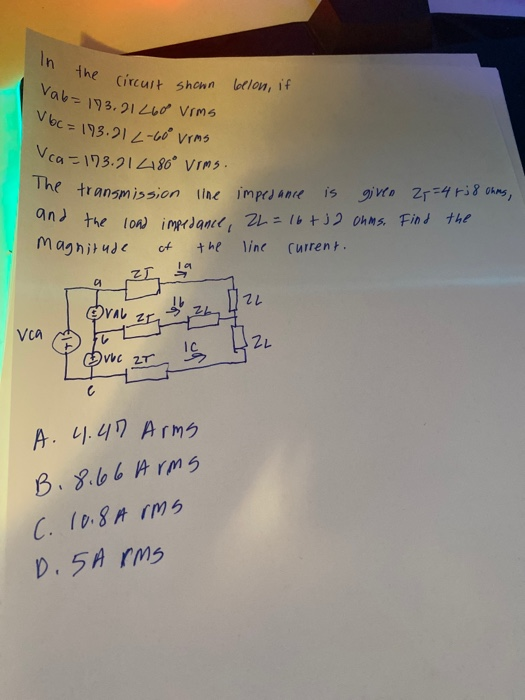 In the circuit shown below, if
Vab = 173.21∠60° Vrms
Vbc = 173.21∠-60° Vrms
Vca = 173.21∠180° Vrms.
The transmission line impedance is given ZT=4+j8 ohms,
and the load impedance, ZL = 16+j2 ohms. Find the
Magnitude of the line current.
ZT Ia
a
ZL
Vab ZT Ib ZL
Vca
b
Vbc ZT IC ZL
c
A. 4.47 Arms
B. 8.66 Arms
C. 10.8A rms
D. 5A rms